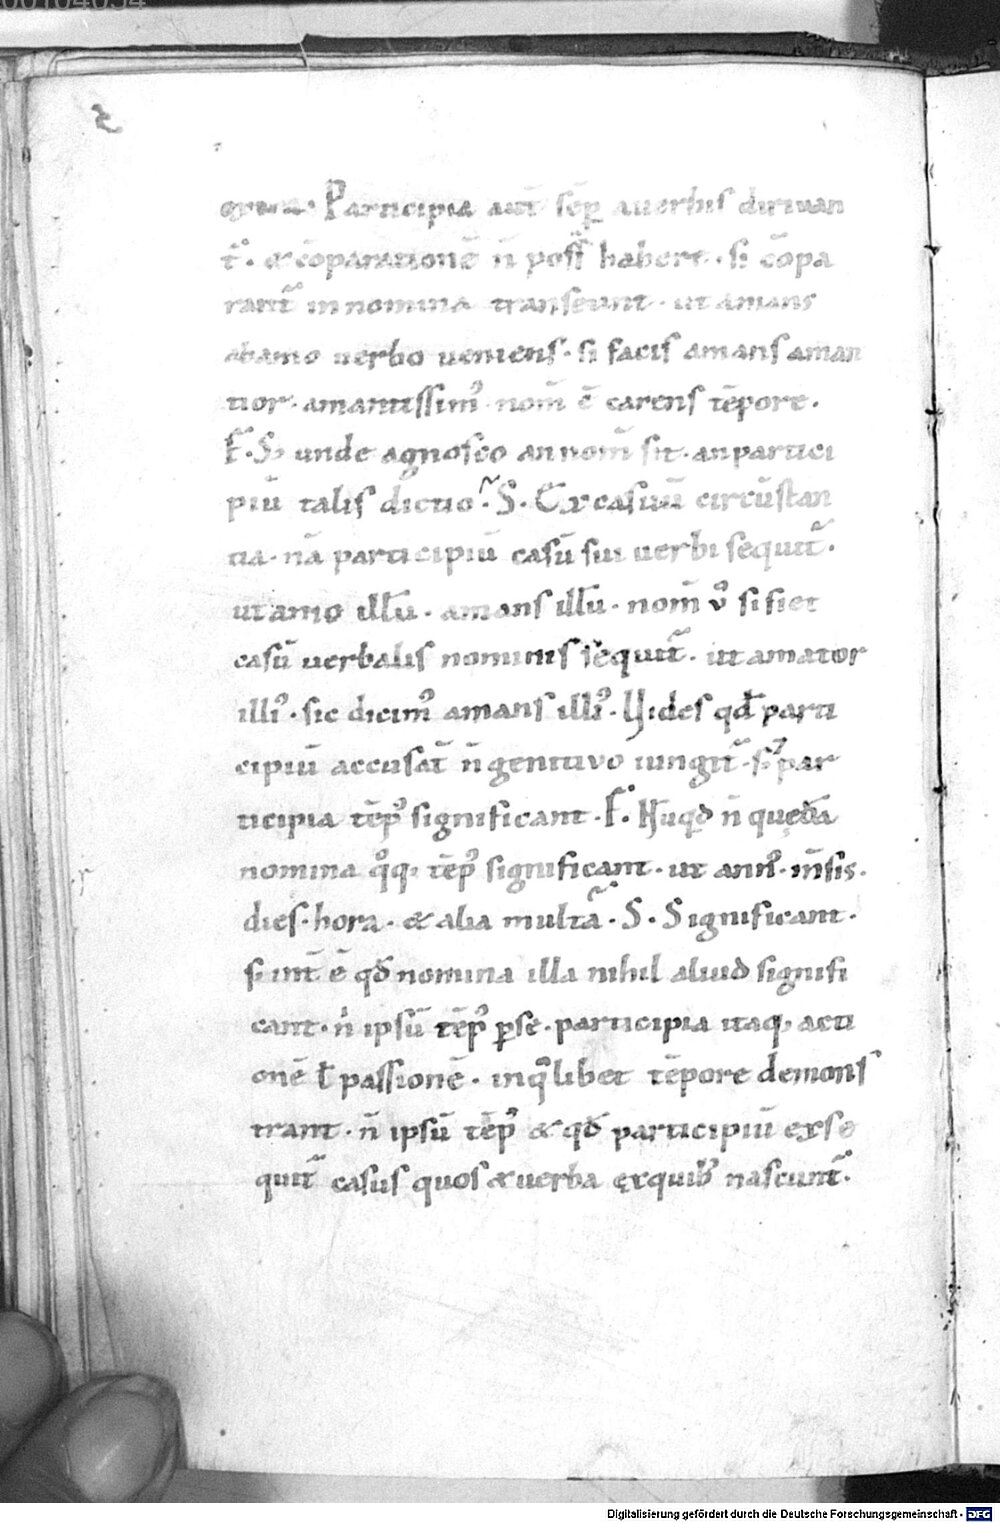 Participia aut̄ sēp̱ auerbis diriuan
t᷑. & cōparationē n̄ poss̄ habere. si cōpa
rant᷑ innomina transeunt. ut amans
abamo uerbo ueniens. si facis amans aman
tior. amantissim᷒ nom̄ ē carens tēpore.
F. S; unde agnosco annom̄ sit. anpartici
piū talis dictio. S. Ex casuū circūstan
tia. nā participiū casū sui uerbi sequit᷑.
ut amo illū. amans illū. nom̄ v̊ si fiet
casū uerbalis nominis sequit᷑. ut amator
illi᷒. sic dicim᷒ amans illi᷒. Vides qđ parti
cipiū accusat̄ n̄ genitiuo iungit᷑. par
ticipia tēp᷒ significant. F. Nūqd n̄ quędā
nomina qͦq; tēp᷒ significant. ut ann᷒. m̄sis.
dies. hora. & alia multa. S. Significant.
s; int̄ ē qđ nomina illa nihil aliud signifi
cant. n̍ ipsū tēp᷒ ꝑse. participia itaq; acti
onē ł passionē. inqͦlibet tēpore demons
trant. n̄ ipsū tēp᷒ & qđ participiū exse
quit᷑ casus quos & uerba exquib᷒ nascunt᷑.
Digitalisierung gefördert durch die Deutsche Forschungsgemeinschaft - DFG